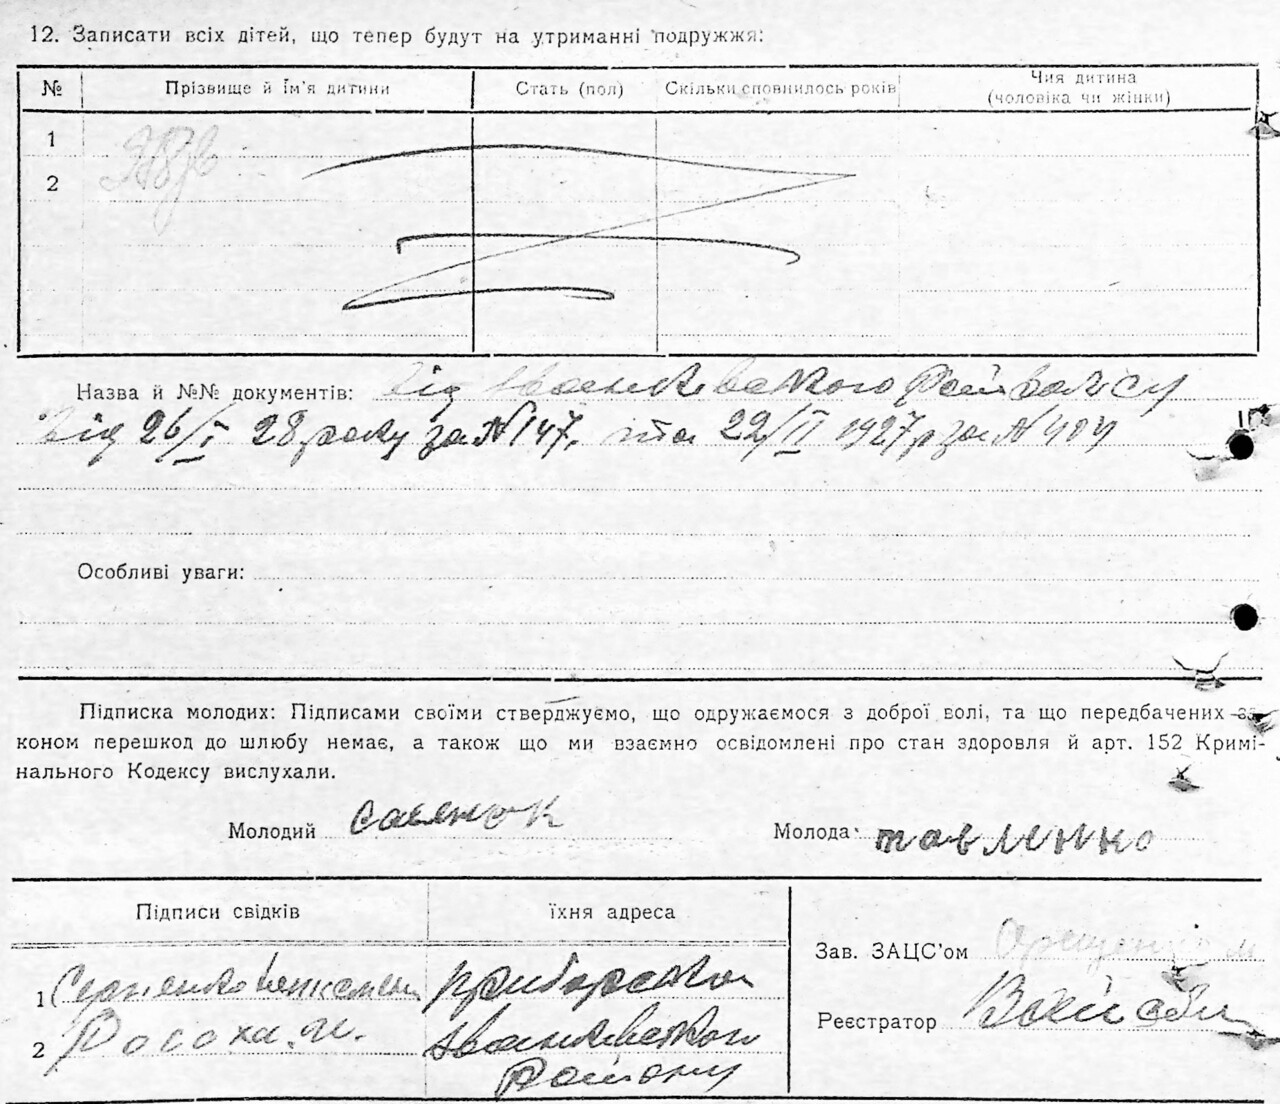 12. Записати всіх дітей, що тепер будут на утриманні подружжя:
№ Прізвище й Ім'я дитини Стать (пол) Скільки сповнилось років Чия дитина
(чоловіка чи жінки)
1
2
Назва й №№ документів: від Іванківського
від 26/I 28 року за № 147, та 22/II 1927 р за № 404
Особливі уваги:
Підписка молодих: Підписами своїми стверджуємо, що одружаємося з доброї волі, та що передбачених за-
коном перешкод до шлюбу немає, а також що ми взаємно освідомлені про стан здоровля й арт. 152 Кримі-
нального Кодексу вислухали.
Молодий Савенок Молода: павленко
Підписи свідків їхня адреса
Зав. ЗАЦС'ом
1
Реєстратор
2 Росоха. Іванківського
району